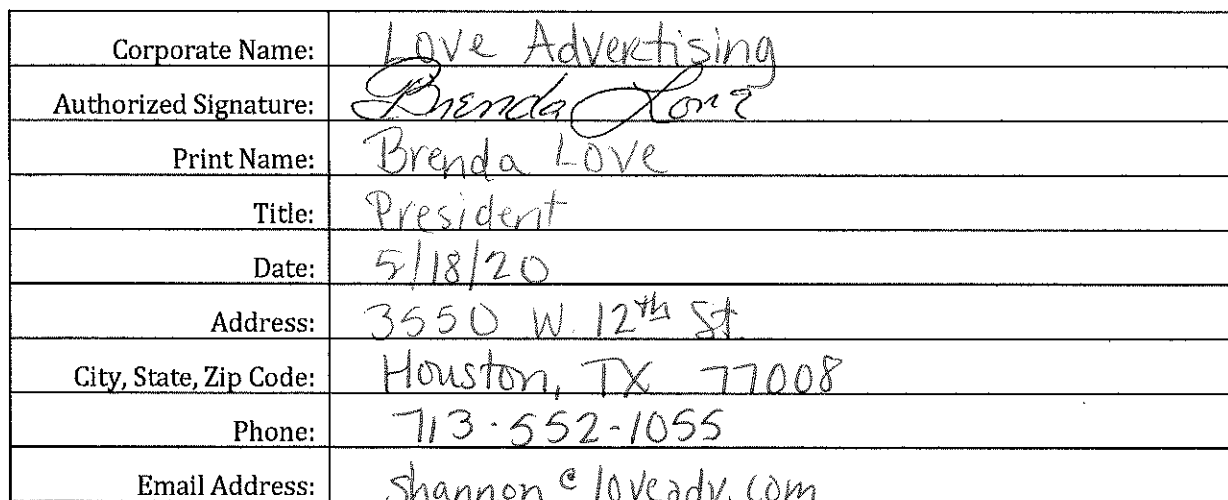 Corporate Name: Love Advertising
Authorized Signature: Brenda Love
Print Name: Brenda Love
Title: President
Date: 5/18/20
Address: 3550 W. 12th St
City, State, Zip Code: Houston, TX 77008
Phone: 713-552-1055
Email Address: shannon@loveadv.com